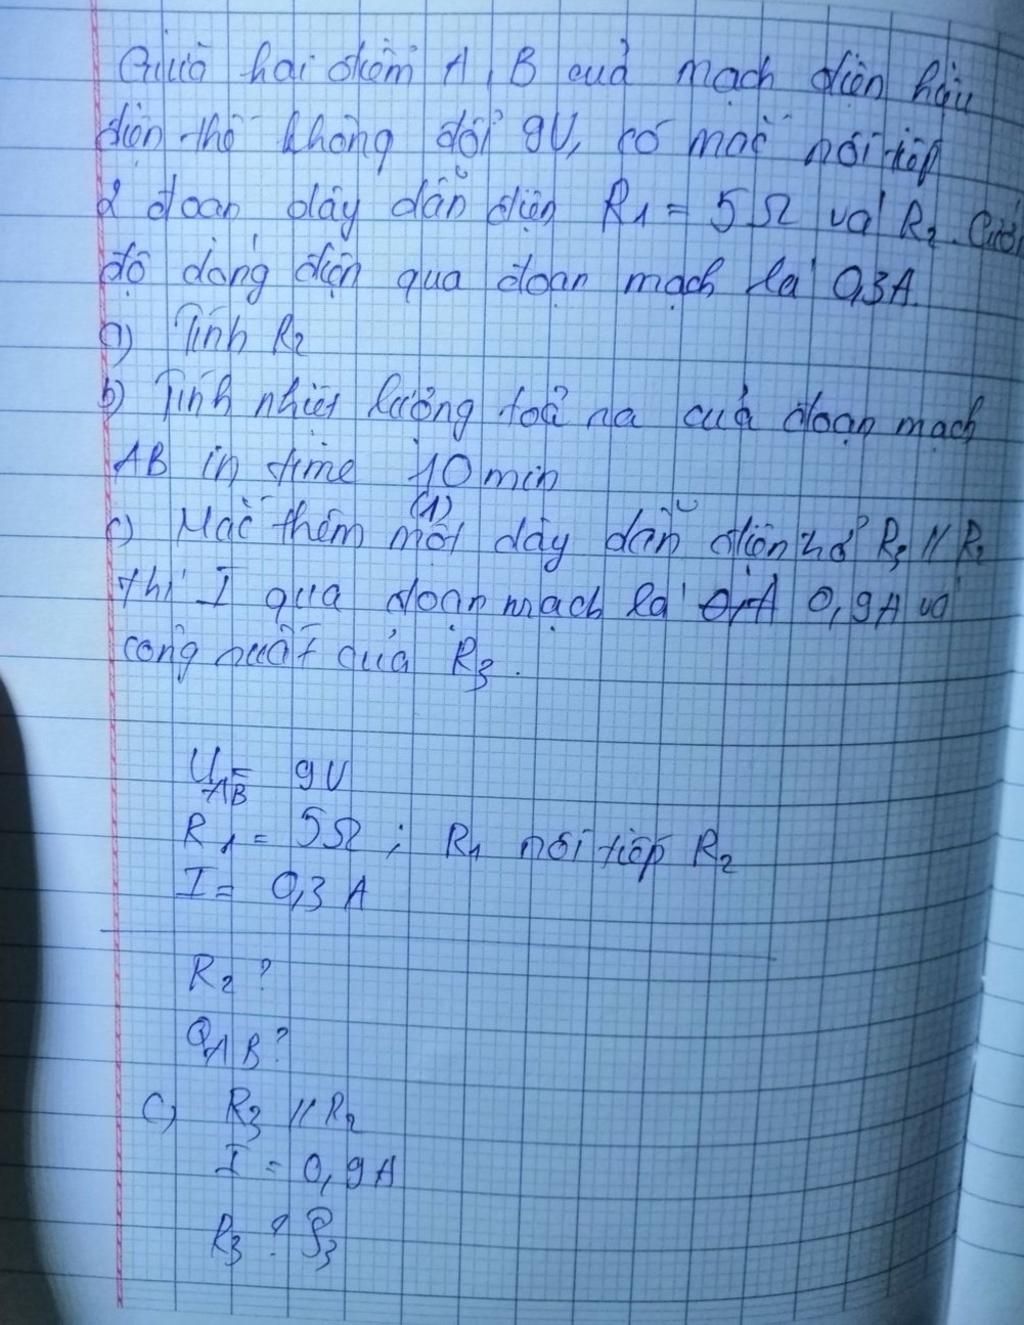 Giữa hai điểm A, B của mạch điện hiệu
điện thế không đổi 9V, có mắc nối tiếp
2 đoạn dây dẫn điện R1 = 5Ω và R2. Cường
độ dòng điện qua đoạn mạch là 0,3A.
a) Tính R2
b) Tính nhiệt lượng toả ra của đoạn mạch
AB in time 10 min
(1)
c) Mắc thêm một dây dẫn điện trở R3 // R2
thì I qua đoạn mạch là 0,9A và
công suất của R3.
UAB = 9V
R1 = 5Ω ; R1 nối tiếp R2
I = 0,3 A
R2 ?
QAB ?
c) R3 // R2
I = 0,9A
R3 ? P3